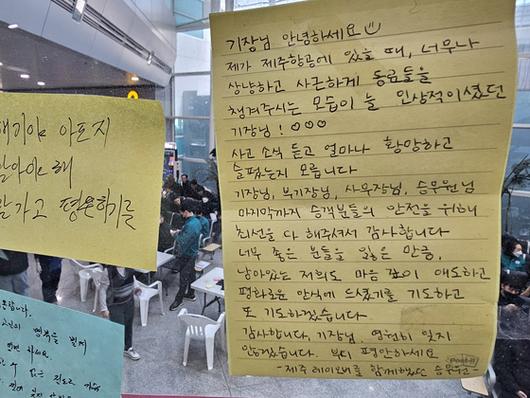 기장님 안녕하세요
제가 제주항공에 있을 때, 너무나
상냥하고 사근하게 동료들을
챙겨주시는 모습이 늘 인상적이셨던
기장님! ♡♡♡
사고 소식 듣고 얼마나 황망하고
슬펐는지 모릅니다
기장님, 부기장님, 사무장님, 승무원님
마지막까지 승객분들의 안전을 위해
최선을 다 해주셔서 감사합니다
너무 좋은 분들을 잃은 만큼,
남아있는 저희도 마음 깊이 애도하고
평화로운 안식에 드셨기를 기도하고
또 기도하겠습니다
감사합니다, 기장님. 영원히 잊지
않겠습니다. 부디 평안하세요
-제주 레이오버를 함께했던 승무원-
Post-it
아프지
말아야 해
가고 평온하기를